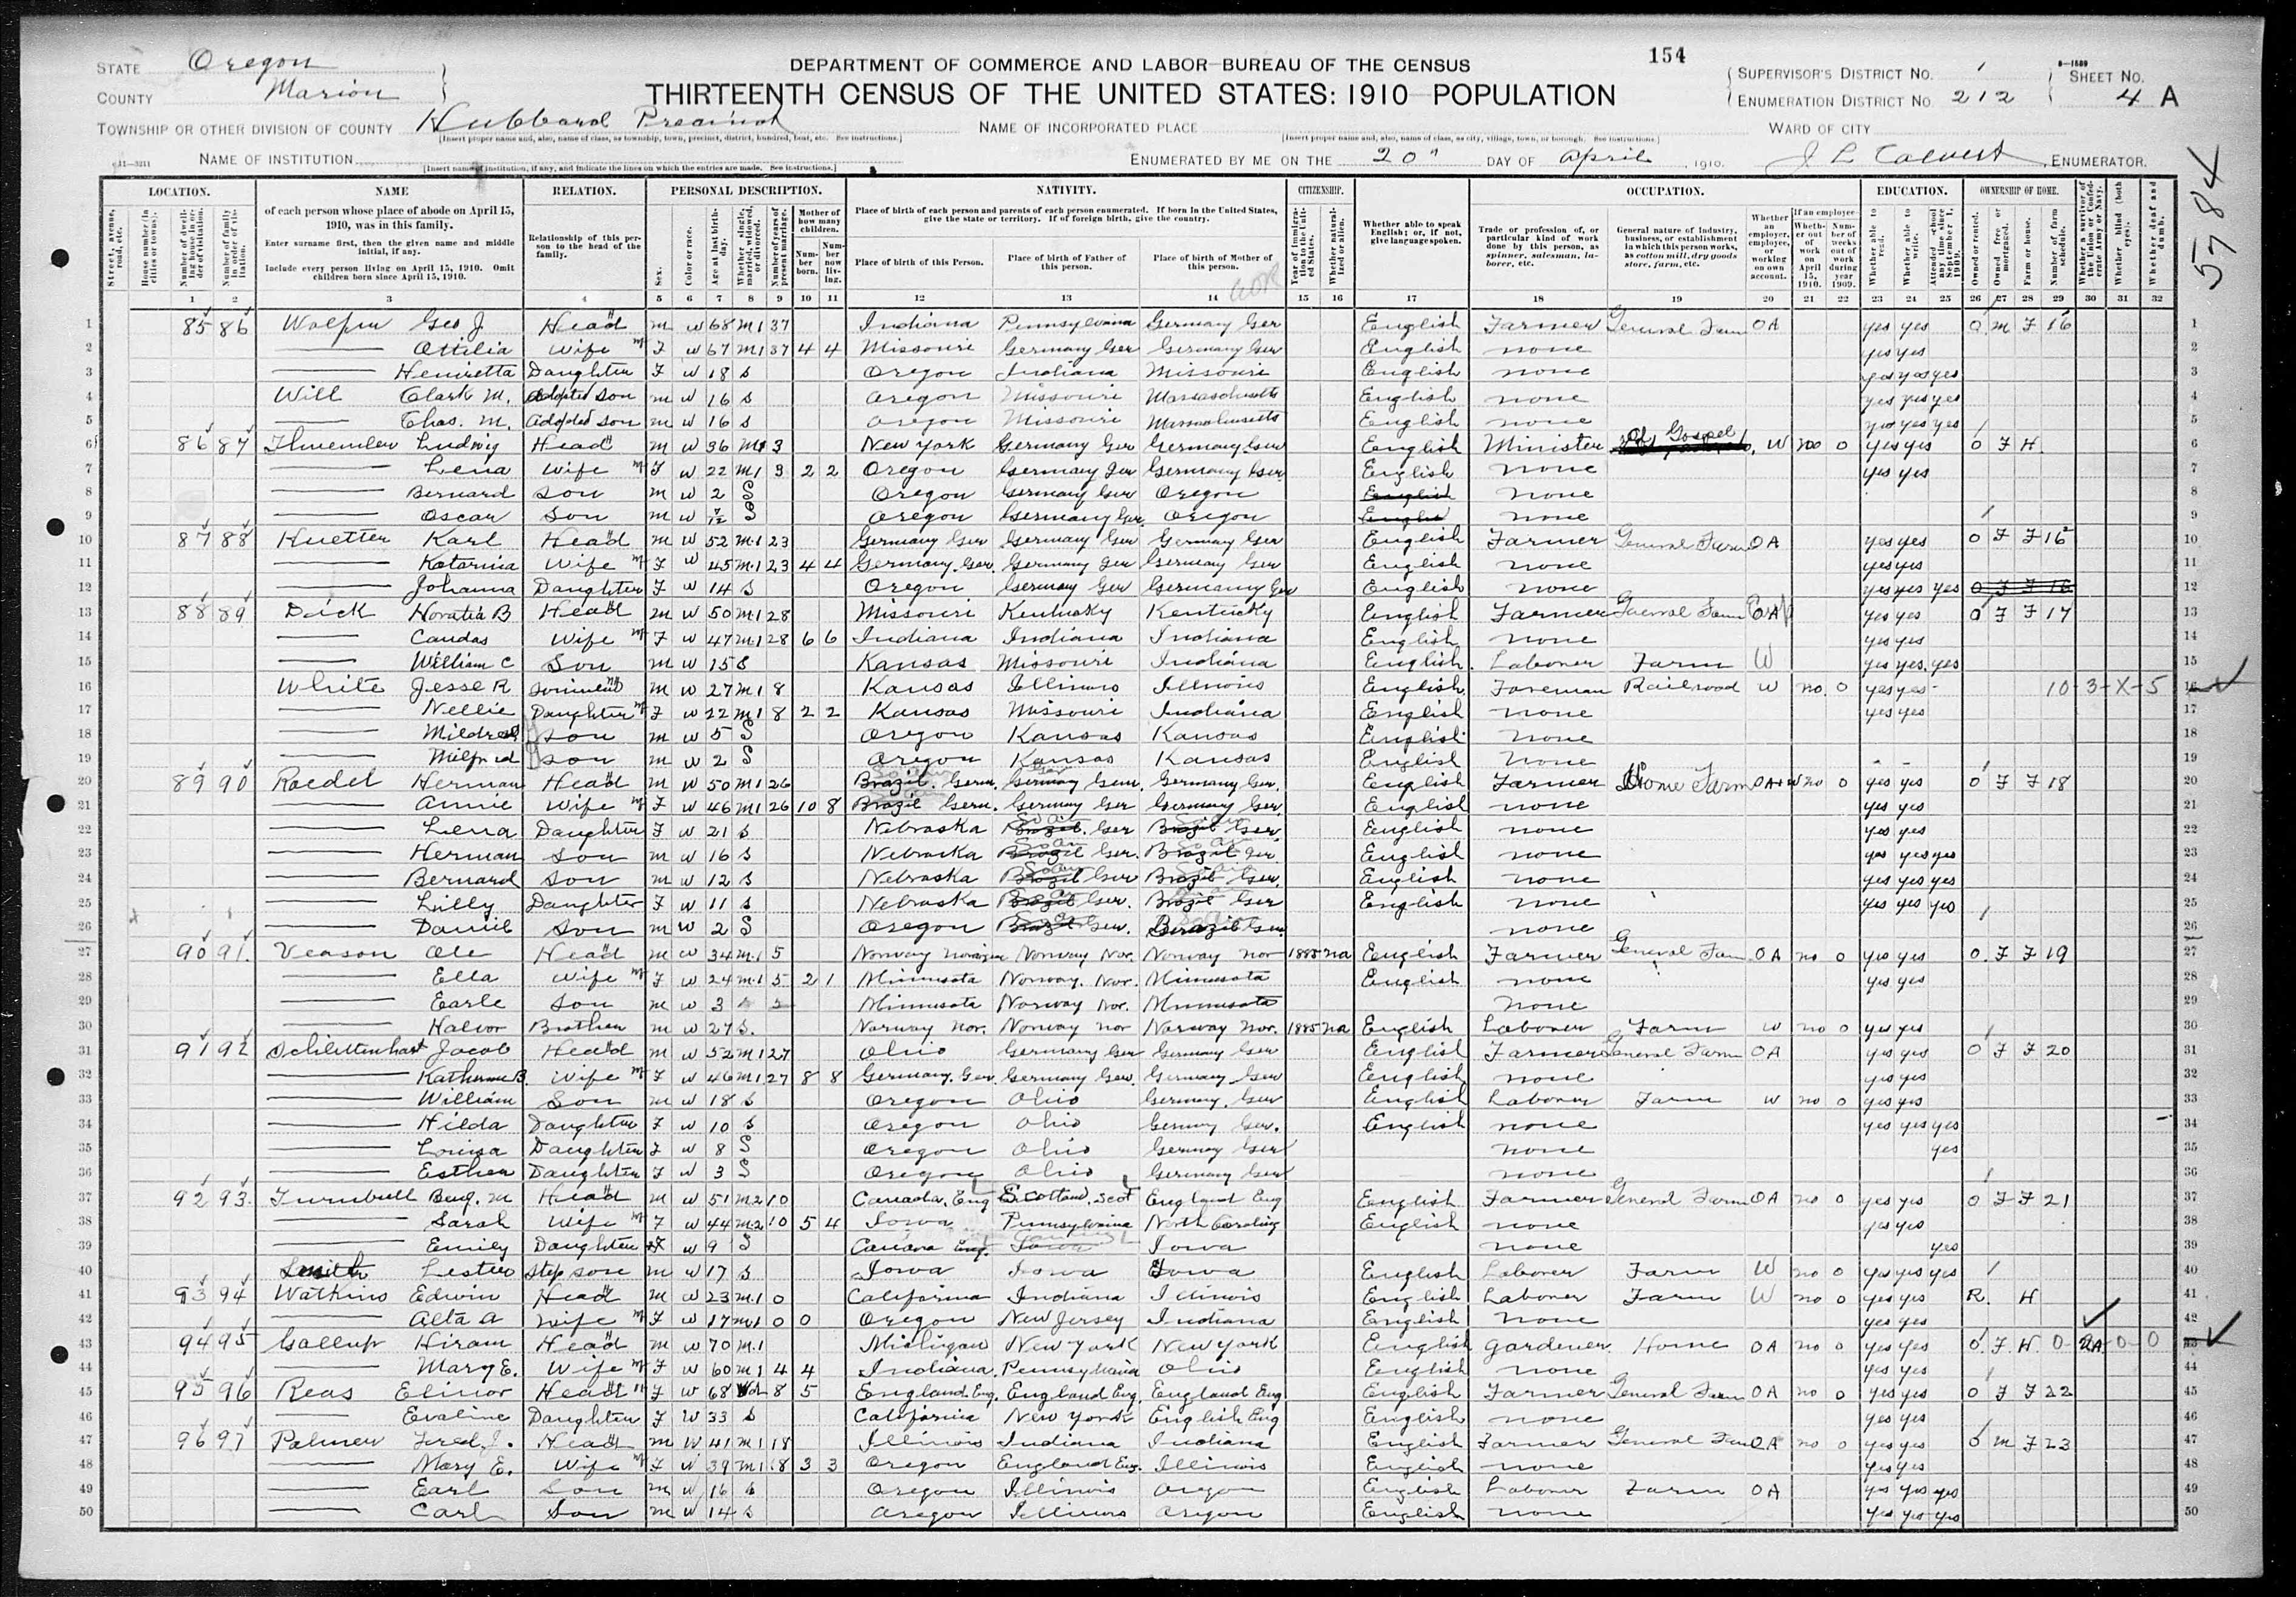 154
STATE Oregon
COUNTY Marion
DEPARTMENT OF COMMERCE AND LABOR—BUREAU OF THE CENSUS
THIRTEENTH CENSUS OF THE UNITED STATES: 1910—POPULATION
SUPERVISOR'S DISTRICT No. 1
ENUMERATION DISTRICT No. 212
SHEET No. 4 A
TOWNSHIP OR OTHER DIVISION OF COUNTY Hubbard Precinct
NAME OF INCORPORATED PLACE
WARD OF CITY
NAME OF INSTITUTION
ENUMERATED BY ME ON THE 20" DAY OF April, 1910. J L Calvert, ENUMERATOR.
57 84
LOCATION. NAME RELATION. PERSONAL DESCRIPTION. NATIVITY. CITIZENSHIP. OCCUPATION. EDUCATION. OWNERSHIP OF HOME.
of each person whose place of abode on April 15, 1910, was in this family.
Enter surname first, then the given name and middle initial, if any.
Include every person living on April 15, 1910. Omit children born since April 15, 1910.
Relationship of this person to the head of the family.
Place of birth of each person and parents of each person enumerated. If born in the United States, give the state or territory. If of foreign birth, give the country.
Place of birth of this Person. Place of birth of Father of this person. Place of birth of Mother of this person.
Whether able to speak English; or, if not, give language spoken.
Trade or profession of, or particular kind of work done by this person, as spinner, salesman, laborer, etc.
General nature of industry, business, or establishment in which this person works, as cotton mill, dry goods store, farm, etc.
1 2 3 4 5 6 7 8 9 10 11 12 13 14 15 16 17 18 19 20 21 22 23 24 25 26 27 28 29 30 31 32
1 85 86 Geo J Head m w 68 M1 37 Indiana Pennsylvania Germany Ger English Farmer General Farm OA yes yes O m F 16
2 Ottilia Wife F w 67 M1 37 4 4 Missouri Germany Ger Germany Ger English none yes yes
3 Henrietta Daughter F w 18 s Oregon Indiana Missouri English none yes yes yes
4 Will Clark M. Adopted son m w 16 s Oregon Missouri Massachusetts English none yes yes yes
5 Chas. M. Adopted son m w 16 s Oregon Missouri Massachusetts English none yes yes yes
6 86 87 Ludwig Head m w 36 M1 3 New York Germany Ger Germany Ger English Minister of Gospel W no 0 yes yes O F H
7 Lena Wife F w 22 M1 3 2 2 Oregon Germany Ger Germany Ger English none yes yes
8 Bernard Son m w 2 S Oregon Germany Ger Oregon English none
9 Oscar Son m w 7/12 S Oregon Germany Ger. Oregon English none
10 87 88 Kuetter Karl Head m w 52 M1 23 Germany Ger Germany Ger Germany Ger English Farmer General Farm OA yes yes O F F 16
11 Katarina Wife F w 45 M1 23 4 4 Germany Ger. Germany Ger Germany Ger English none yes yes
12 Johanna Daughter F w 14 s Oregon Germany Ger Germany Ger English none yes yes yes O F F 16
13 88 89 Dick Horatia B Head m w 50 M1 28 Missouri Kentucky Kentucky English Farmer General Farm OA yes yes O F F 17
14 Candas Wife F w 47 M1 28 6 6 Indiana Indiana Indiana English none yes yes
15 William C Son m w 15 s Kansas Missouri Indiana English Laborer Farm W yes yes yes
16 White Jesse R m w 27 M1 8 Kansas Illinois Illinois English Foreman Railroad W no 0 yes yes 10-3-X-5
17 Nellie Daughter F w 22 M1 8 2 2 Kansas Missouri Indiana English none yes yes
18 Mildred son m w 5 S Oregon Kansas Kansas English none
19 Milfred son m w 2 S Oregon Kansas Kansas English none
20 89 90 Raedel Herman Head m w 50 M1 26 Brazil Germ. Germany Germ. Germany Ger. English Farmer Home Farm OA no 0 yes yes O F F 18
21 Annie Wife F w 46 M1 26 10 8 Brazil Germ. Germany Ger Germany Ger English none yes yes
22 Lena Daughter F w 21 s Nebraska Brazil Ger Brazil Ger English none yes yes
23 Herman Son m w 16 s Nebraska Brazil Ger. Brazil Ger. English none yes yes yes
24 Bernard Son m w 12 s Nebraska Brazil Ger Brazil Ger. English none yes yes yes
25 Lilly Daughter F w 11 s Nebraska Brazil Ger. Brazil Ger English none yes yes yes
26 Daniel Son m w 2 S Oregon Brazil Ger. Brazil Ger. none
27 90 91 Veason Ole Head m w 34 M1 5 Norway Norway Nor. Norway nor 1885 na English Farmer General Farm OA no 0 yes yes O F F 19
28 Ella Wife F w 24 M1 5 2 1 Minnesota Norway. Nor. Minnesota English none yes yes
29 Earle Son m w 3 Minnesota Norway Nor. Minnesota none
30 Halvor Brother m w 27 S. Norway Nor. Norway nor Norway Nor. 1885 na English Laborer Farm W no 0 yes yes
31 91 92 Jacob Head m w 52 M1 27 Ohio Germany Ger Germany Ger English Farmer General Farm OA yes yes O F F 20
32 Katherine B. Wife F w 46 M1 27 8 8 Germany. Ger. Germany Ger. Germany Ger English none yes yes
33 William Son m w 18 s Oregon Ohio Germany. Ger English Laborer Farm W no 0 yes yes
34 Hilda Daughter F w 10 s Oregon Ohio Germany Ger. English none yes yes yes
35 Louisa Daughter F w 8 S Oregon Ohio Germany Ger none yes
36 Esther Daughter F w 3 S Oregon Ohio Germany Ger none
37 92 93 Turnbull Benj. M Head m w 51 M2 10 Canada. Eng Scotland. Scot England Eng English Farmer General Farm OA no 0 yes yes O F F 21
38 Sarah Wife F w 44 M2 10 5 4 Iowa Pennsylvania North Carolina English none yes yes
39 Emily Daughter F w 9 S Canada Eng. Iowa Iowa none yes
40 Smith Lester Step son m w 17 s Iowa Iowa Iowa English Laborer Farm W no 0 yes yes yes
41 93 94 Watkins Edwin Head m w 23 M1 0 California Indiana Illinois English Laborer Farm W no 0 yes yes R. H
42 Alta A Wife F w 17 M1 0 0 Oregon New Jersey Indiana English none yes yes
43 94 95 Gallup Hiram Head m w 70 M1 Michigan New York New York English Gardener Home OA no 0 yes yes O F H 0 0 0
44 Mary E. Wife F w 60 M1 4 4 Indiana Pennsylvania Ohio English none yes yes
45 95 96 Reas Elinor Head F w 68 Wd 8 5 England Eng. England Eng. England Eng English Farmer General Farm OA no 0 yes yes O F F 22
46 Evaline Daughter F W 33 s California New York English Eng English none yes yes
47 96 97 Palmer Fred J. Head m W 41 M1 18 Illinois Indiana Indiana English Farmer General Farm OA no 0 yes yes O m F 23
48 Mary E. Wife F W 39 M1 18 3 3 Oregon England Eng. Illinois English none yes yes
49 Earl Son m W 16 s Oregon Illinois Oregon English Laborer Farm OA yes yes yes
50 Carl Son m W 14 s Oregon Illinois Oregon English none yes yes yes